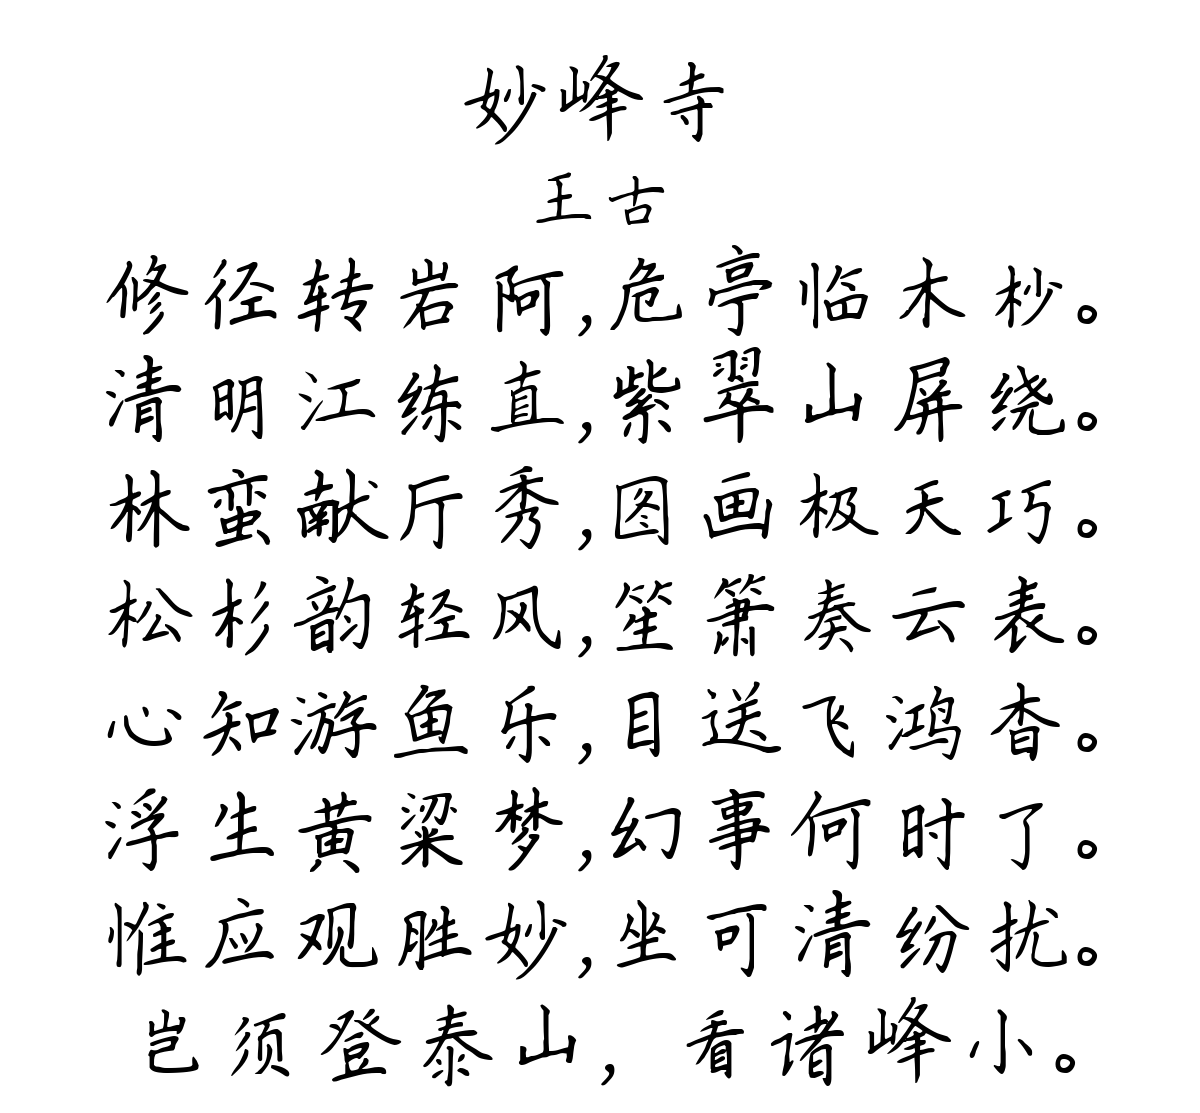 妙峰寺
王古
修径转岩阿,危亭临木杪。
清明江练直,紫翠山屏绕。
林蛮献厅秀,图画极天巧。
松杉韵轻风,笙箫奏云表。
心知游鱼乐,目送飞鸿杳。
浮生黄粱梦,幻事何时了。
惟应观胜妙,坐可清纷扰。
岂须登泰山,看诸峰小。